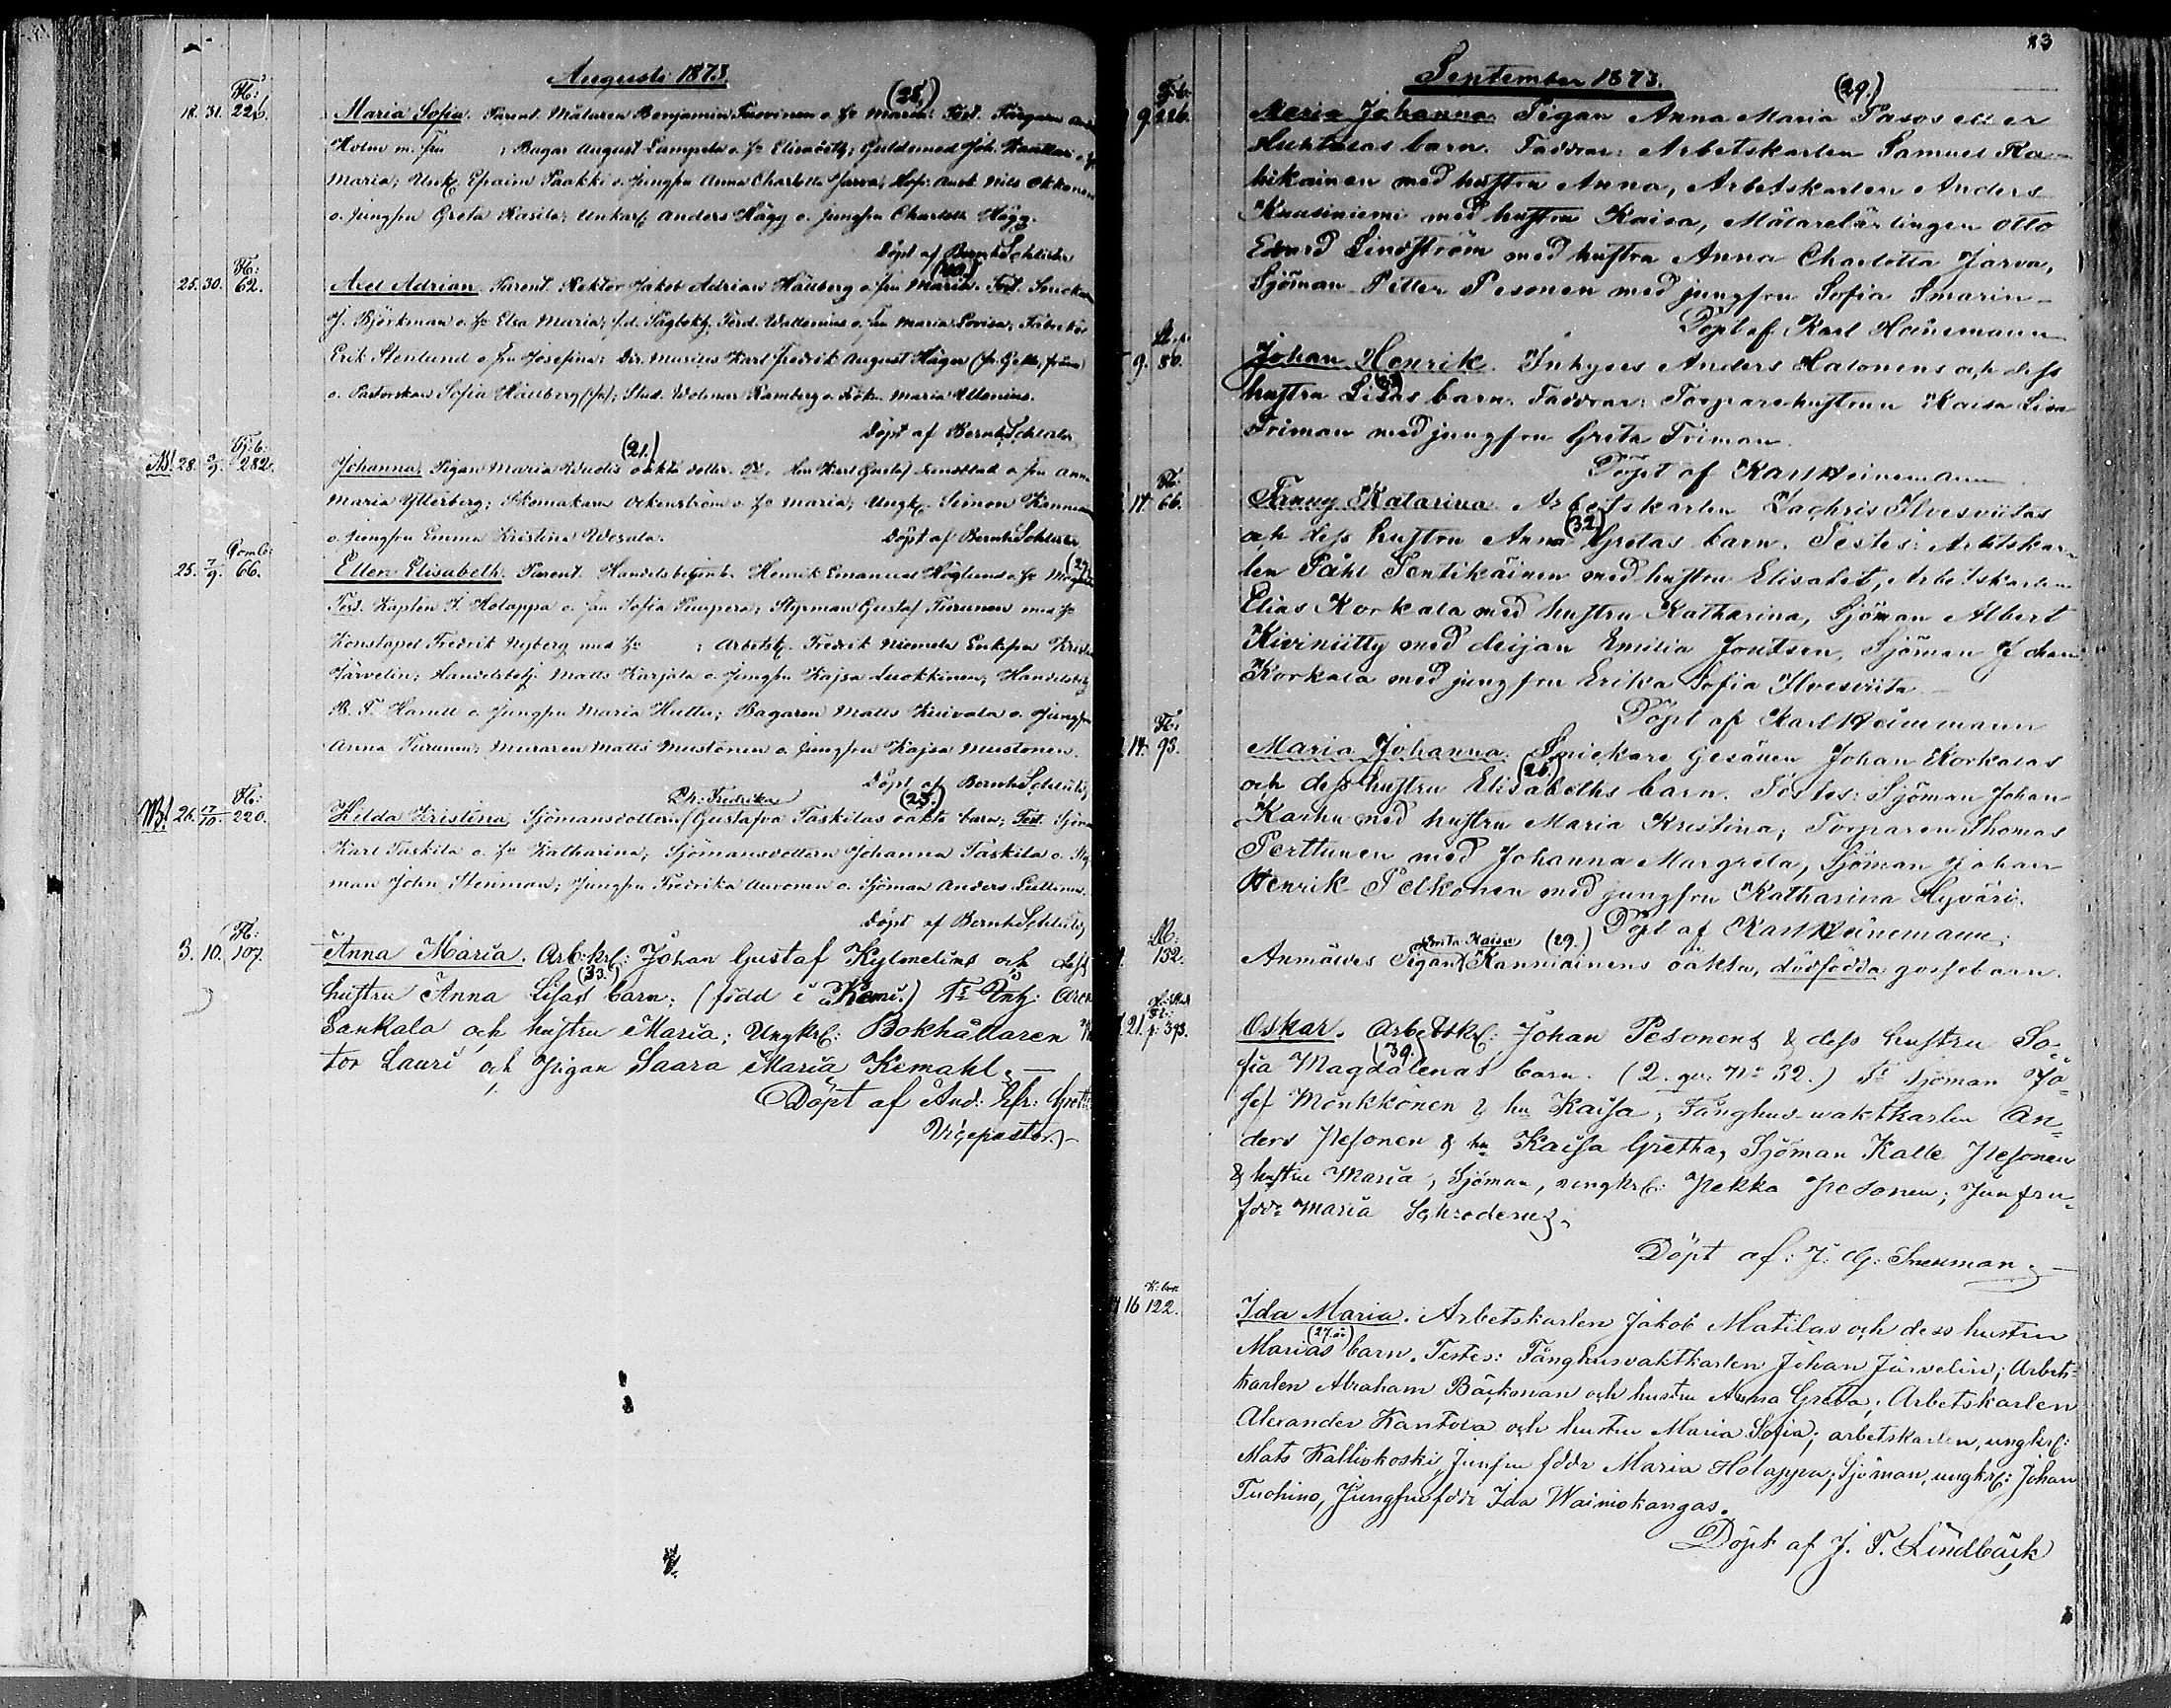 Augusti 1873.
Fb:
18. 31. 226. Maria Sofia. Parent. Målaren Benjamin o. h: Maria. (28.) Test. Färgaren
Holm m. fru ; Bagar August Lampela o. h: Elisabeth; Guldsmed Joh. o. h:
Maria; Ungk. Efraim Paakki o. jungfru Anna Charlotta Jarva; Nils Okkonen
o. jungfru Greta Kasila; Unkarl: Anders Hägg o. jungfru Charlotta Hägg.
Döpt af Bernh. Schlüter
Fb:
25. 30. 62. Axel Adrian. Parent. Rektor Jakob Adrian Hällberg o. fru Maria. Test.
J. Björkman o. h: Elsa Maria; f.d. Ferd. Wallenius o. fru Maria Lovisa;
Erik Stenlund o. fru Josefina; Dir. Musices Karl Fredrik August Häger
o. Pastorskan Sofia Hällberg; Stud. Wolmar Ramberg o. Frök. Maria
Döpt af Bernh. Schlüter
28. 2/9. 282. Johanna. Pigan Maria (21.) oäkta dotter. Karl Gustaf o. fru Anna
Maria Ytterberg; Skomakaren o. h: Maria; Ungk. Simon
o. jungfru Emma Kristina Wesala. Döpt af Bernh. Schlüter
25. 7/9. 66. Ellen Elisabeth. Parent. Handelsbetjent Henrik Emanuel Höglund o. h: (27.)
Test. Kapten J. Holappa o. fru Sofia; Styrman Gustaf Turunen med h:
Konstapel Fredrik Nyberg med h: ; Arbetsk. Fredrik Niemela Enkefru
Järvelin; Handelsbetj. Matts Karjala o. jungfru Kajsa Luokkinen; Handelsbetj
B. F. o. Jungfru Maria Hutter; Bagaren Matts o. Jungfru
Anna Turunen; Muraren Matts Mustonen o. jungfru Kajsa Mustonen.
Döpt af Bernh. Schlüter
Fb: Fredrika (25.)
26. 17/10 220. Hilda Kristina. Sjömansdottern Gustafva Taskilas oäkta barn; Test. Sjöm
Karl Taskila o. h: Katharina; Sjömansdottern Johanna Taskila o. Sty
man John Stenman; jungfru Fredrika o. Sjöman Anders
Döpt af Bernh. Schlüter
Fb:
3. 10. 107. Anna Maria. Arb:krl: Johan Gustaf Kylmelins och dess
hustru Anna Lisas (33.) barn: (född i Kemi.)
Sankala och hustru Maria; Ungkrl: Bokhållaren
tor Lauri och Pigan Saara Maria Kemahl. —
Döpt af And:
Vicepastor. —
83
September 1873.
(29.)
9. 226. Maria Johanna. Pigan Anna Maria Pasos eller
Huhtalas barn. Faddrar: Arbetskarlen Samuel Ka-
hikainen med hustru Anna, Arbetskarlen Anders
Kuusiniemi med hustru Kaisa, Målarelärlingen Otto
Edvard Lindström med hustru Anna Charlotta Jarva,
Sjöman Petter Pesonen med jungfru Sofia Smarin —
Döpt af Karl Heinemann
9. 80. Johan Henrik. Inhyses Anders Halonens och dess
hustru Lisas barn. Faddrar: Torparehustrun Kaisa Lisa
Friman med jungfru Greta Friman.
Döpt af Karl Heinemann
Fb:
14. 66. Fanny Katarina. Arbetskarlen Zachris Ilvesviitas
och dess hustru Anna Gretas (32.) barn. Testes: Arbetskar-
len Påhl Pentikäinen med hustru Elisabet, Arbetskarlen
Elias Korkala med hustru Katharina, Sjöman Albert
Kiviniitty med deijan Emilia Joutsen, Sjöman Johan
Korkala med jungfru Erika Sofia Ilvesviita —
Döpt af Karl Heinemann
Fb:
14. 93. Maria Johanna. Snickare Gesällen Johan Korkalas
och dess hustru Elisabeths (26.) barn. Testes: Sjöman Johan
Karhu med hustru Maria Kristina; Torparen Thomas
Perttunen med Johanna Margreta, Sjöman Johan
Henrik Pelkonen med jungfru Katharina Hyväri.
Döpt af Karl Heinemann;
Greta Kaisa (29.)
132. Anmäldes Pigan Kanniainens oäkta, dödfödda gossebarn.
21. 393. Oskar. Arbetskl: Johan Pesonens & dess hustru So-
fia Magdalenas (39.) barn. (2. qv. No 32.) Ts Sjöman Jo-
sef Mönkkönen & hu Kaisa; Fånghus-vaktkarlen An-
ders Pesonen & hu Kaisa Gretha, Sjöman Kalle Pesonen
& hustru Maria; Sjöman, ungkrl: Pekka Pesonen; Junfru
födr Maria Schroderus.
Döpt af: J. G: Snellman. —
16 122. Ida Maria. Arbetskarlen Jakob Matilas och dess hustru
Marias (27. år) barn. Testes: Fånghusvaktkarlen Johan Järvelin; Arbets-
karlen Abraham Bäckman och hustru Anna Greta; Arbetskarlen
Alexander Kantola och hustru Maria Sofia; arbetskarlen, ungkrl:
Mats Kalliokoski, Junfru födr Maria Holappa; Sjöman, ungkrl: Johan
Tuohino, Jungfru födr Ida Wainiokangas.
Döpt af J. F. Lindbäck